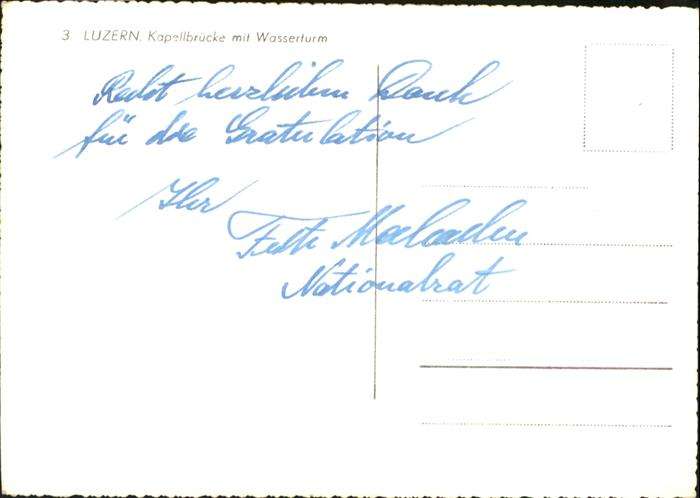 3 LUZERN. Kapellbrücke mit Wasserturm
Recht herzlichen Dank
für die Gratulation
Ihr
Nationalrat